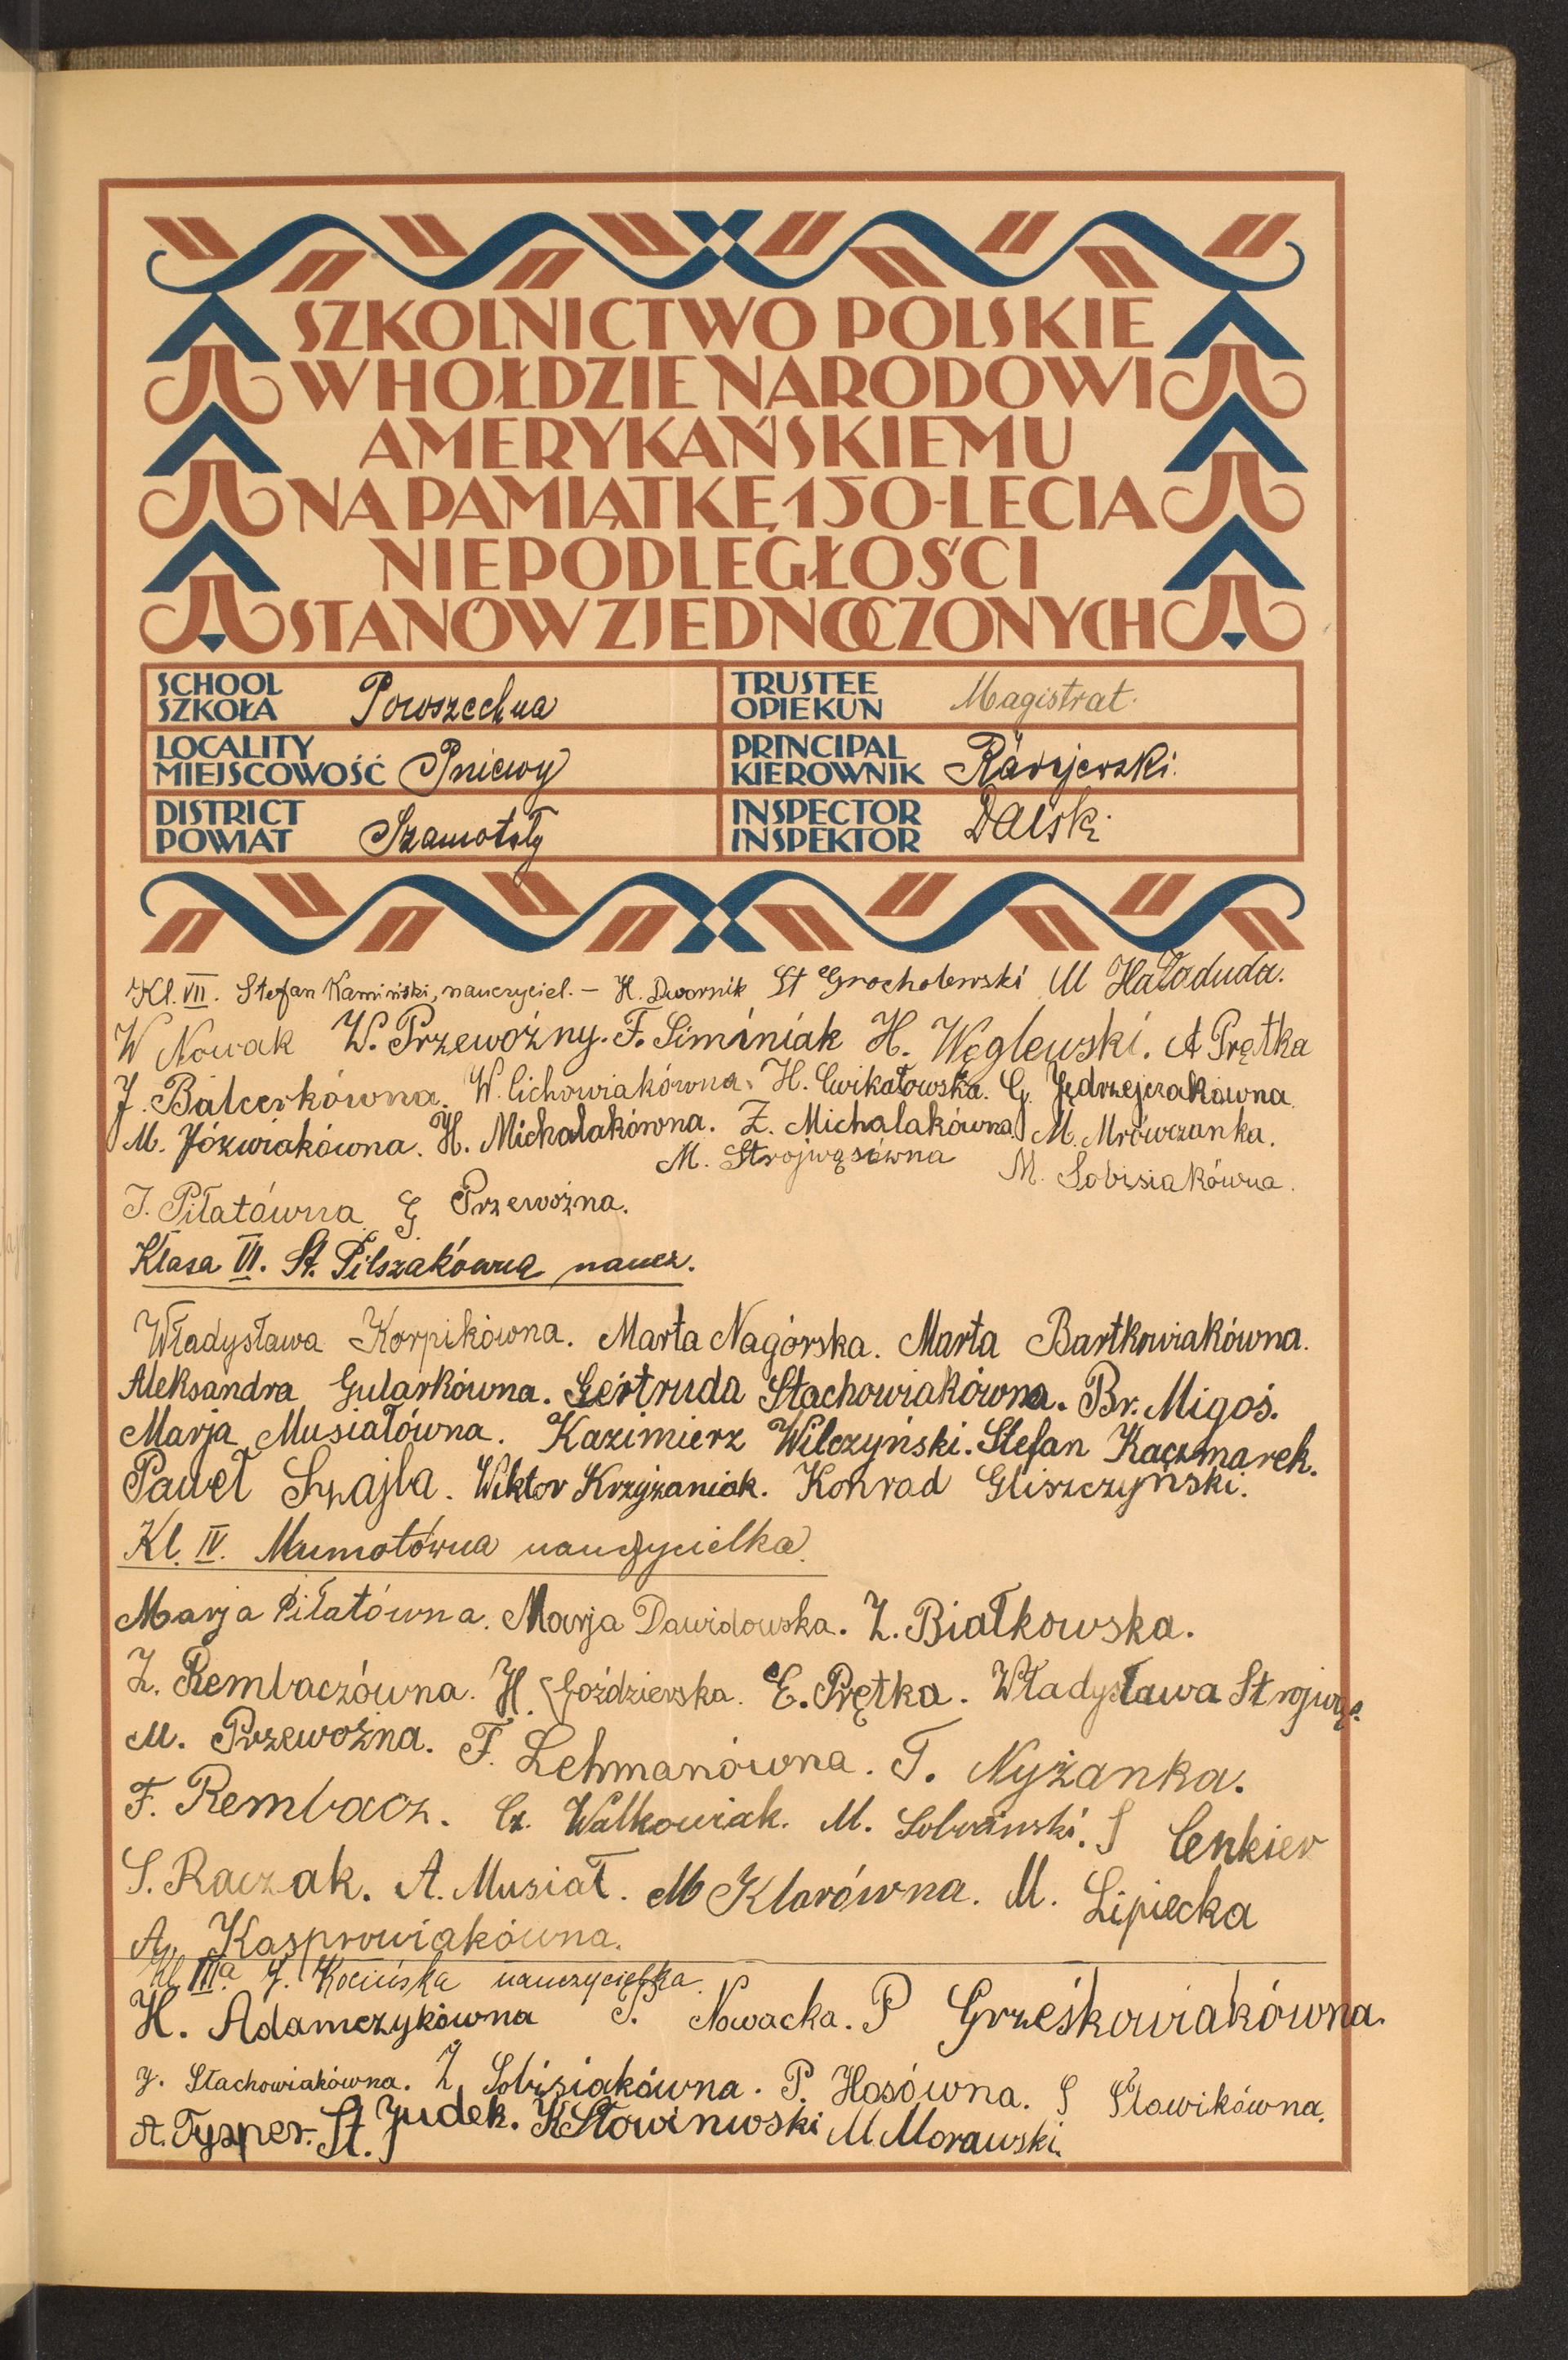 SZKOLNICTWO POLSKIE
W HOŁDZIE NARODOWI
AMERYKAŃSKIEMU
NA PAMIĄTKĘ 150-LECIA
NIEPODLEGŁOŚCI
STANÓW ZJEDNOCZONYCH
SCHOOL SZKOŁA Powszechna
TRUSTEE OPIEKUN Magistrat.
LOCALITY MIEJSCOWOŚĆ Pniewy
PRINCIPAL KIEROWNIK
DISTRICT POWIAT Szamotuły
INSPECTOR INSPEKTOR Dalski
Kl. VII. Stefan Kamiński, nauczyciel. – H. Dwornik St Grocholewski M Haładuda.
W Nowak W. Przewoźny. F. Siminiak H. Węglewski. A Prętka
J. Balcerkówna. W. Cichowiakówna. H. Ćwikałowska. G. Jędrzejczakówna.
M. Jóźwiakówna. H. Michalakówna. Z. Michalakówna M. Mrówczanka.
M. Strojwąsówna M. Sobisiakówna.
J. Piłatówna G. Przewoźna.
Klasa VI. St. Pilszakówna naucz.
Władysława Korpikówna. Marta Nagórska. Marta Bartkowiakówna.
Aleksandra Gularkówna. Gertruda Stachowiakówna. Br. Migoś.
Marja Musiałówna. Kazimierz Wilczyński. Stefan Kaczmarek.
Paweł Szajba. Wiktor Krzyżaniak. Konrad Gliszczyński.
Kl. IV. Mumotówna nauczycielka.
Marja Piłatówna. Marja Dawidowska. Z. Białkowska.
Z. Rembaczówna. H. Goździewska. E. Prętka. Władysława Strojwąs.
M. Przewoźna. F. Lehmanówna. T. Nyżanka.
F. Rembacz. Cz. Walkowiak. M. S Cenkier
S. Raczak. A. Musiał. M Klarówna. M. Lipiecka
A. Kasprowiakówna.
Kl. IIIa J. Kocińska nauczycielka.
H. Adamczykówna S. Nowacka. P Grześkowiakówna.
J. Stachowiakówna. Z. Sobisiakówna. P. Hosówna. S Słowikówna.
A. Tysper. St. Judek. K Słowinwski M Morawski.